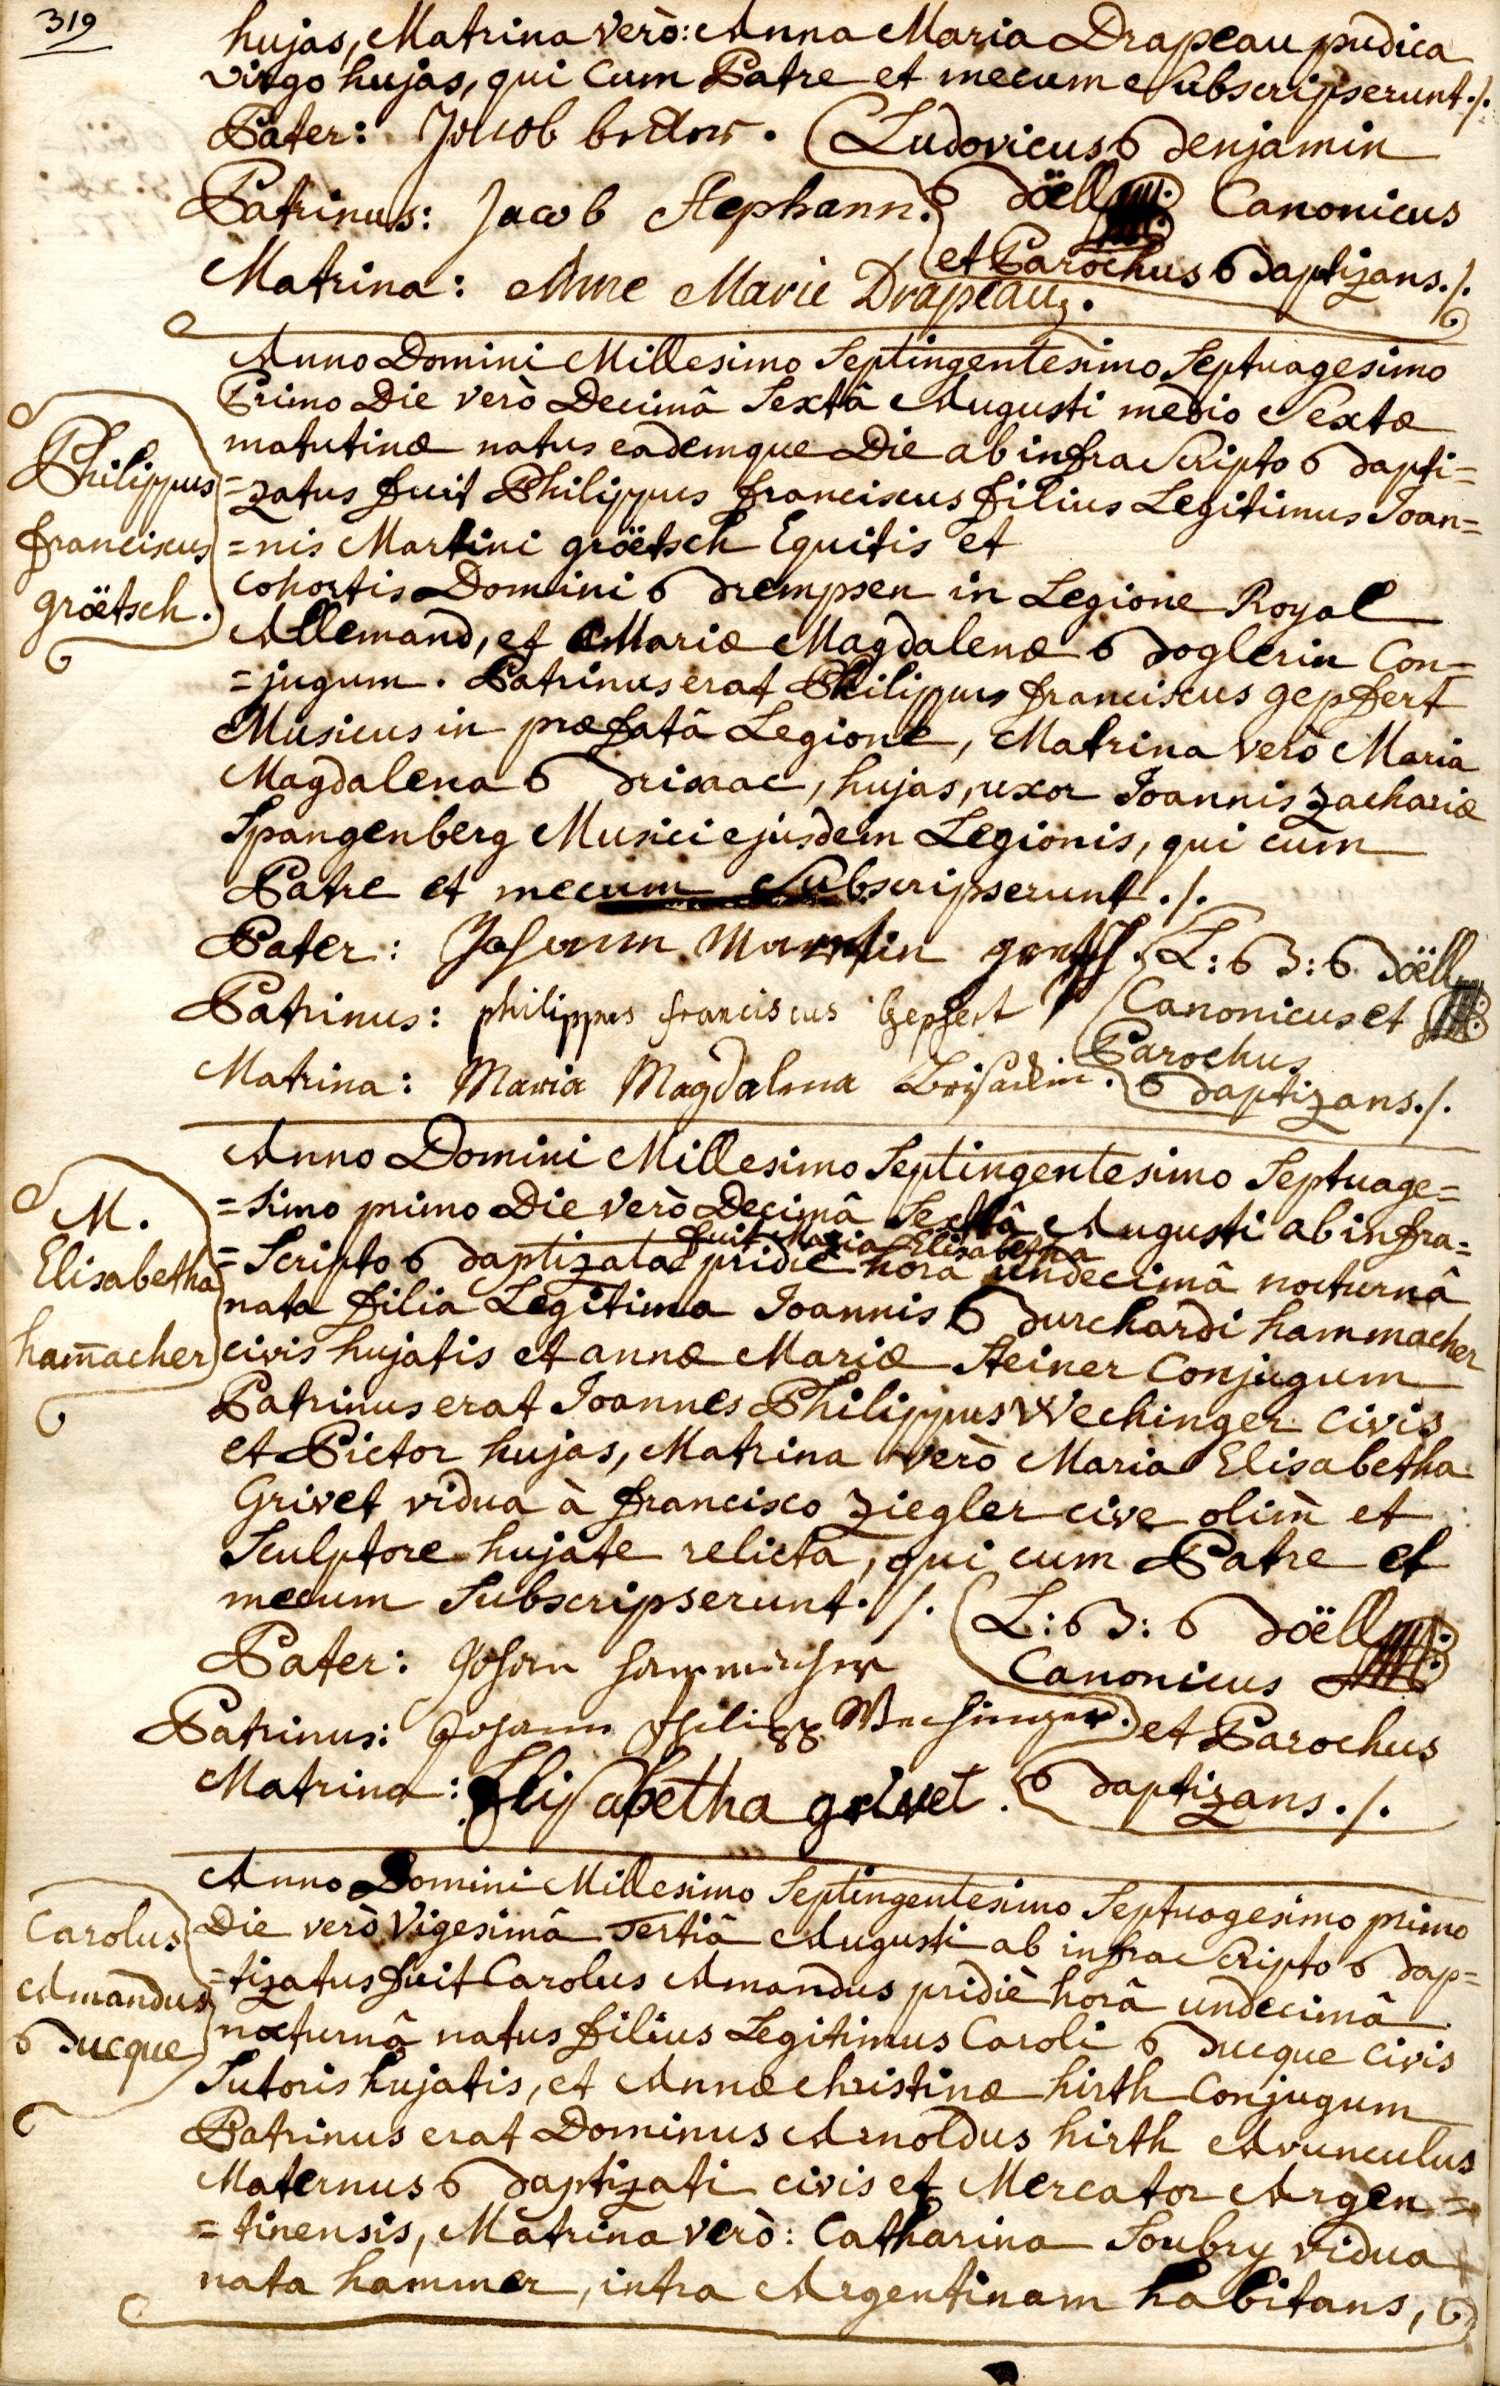 319
hujas, Matrina verò: Anna Maria Drapeau pudica
virgo hujas, qui cum Patre et mecum Subscripserunt ./.
Pater: Jacob
Ludovicus Benjamin
Patrinus: Jacob Stephann.
Böell Canonicus
et Parochus Baptizans ./.
Matrina: Anne Marie Drapeau.
Anno Domini Millesimo Septingentesimo Septuagesimo
Primo Die verò Decimâ Sextâ Augusti medio Sextæ
matutinæ natus eademque Die ab infra Scripto Bapti=
Philippus
franciscus
gröetsch.
=zatus fuit Philippus franciscus filius Legitimus Joan=
=nis Martini gröetsch Equitis et
cohortis Domini Brempsen in Legione Royal
Allemand, et Mariæ Magdalenæ Boglerin Con=
=jugum. Patrinus erat Philippus franciscus gepfert
Musicus in præfatâ Legione, Matrina verò Maria
Magdalena Brisaac, hujas, uxor Joannis Zachariæ
Spangenberg Musici ejusdem Legionis, qui cum
Patre et mecum Subscripserunt ./.
Pater: Johann Martin
L: B: Böell
Patrinus: philippus franciscus Gepfert
Canonicus et
Parochus
Matrina: Maria Magdalena Brisackin.
Baptizans ./.
Anno Domini Millesimo Septingentesimo Septuage=
=simo primo Die verò Decimâ Sextâ Augusti ab infra=
fuit Maria Elisabetha
=Scripto Baptizata pridie horâ undecimâ nocturnâ
M.
Elisabetha
ham̄acher
nata filia Legitima Joannis Burchardi hammacher
civis hujatis et annæ Mariæ Steiner Conjugum
Patrinus erat Joannes Philippus Wechinger civis
et Pictor hujas, Matrina verò Maria Elisabetha
Grivet vidua à francisco Ziegler cive olim et
Sculptore hujate relicta, qui cum Patre et
mecum Subscripserunt ./.
L: B: Böell
Pater: Johan hammacher
Canonicus
Patrinus: Johann Philipp Wechinger.
et Parochus
Matrina: Elisabetha grivet.
Baptizans ./.
Anno Domini Millesimo Septingentesimo Septuagesimo primo
Die verò Vigesimâ Tertiâ Augusti ab infra Scripto Bap=
Carolus
Amandus
Bucque
=tizatus fuit Carolus Amandus pridiè horâ undecimâ
nocturnâ natus filius Legitimus Caroli Bucque civis
Sutoris hujatis, et Annæ christinæ hirth Conjugum
Patrinus erat Dominus Arnoldus hirth Avunculus
Maternus Baptizati civis et Mercator Argen=
=tinensis, Matrina verò: Catharina Soubry vidua
nata hammer, intra Argentinam habitans,